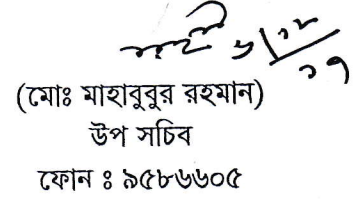 ৬/১২/১৭
(মোঃ মাহাবুবুর রহমান)
উপ সচিব
ফোন ঃ ৯৫৮৬৬০৫